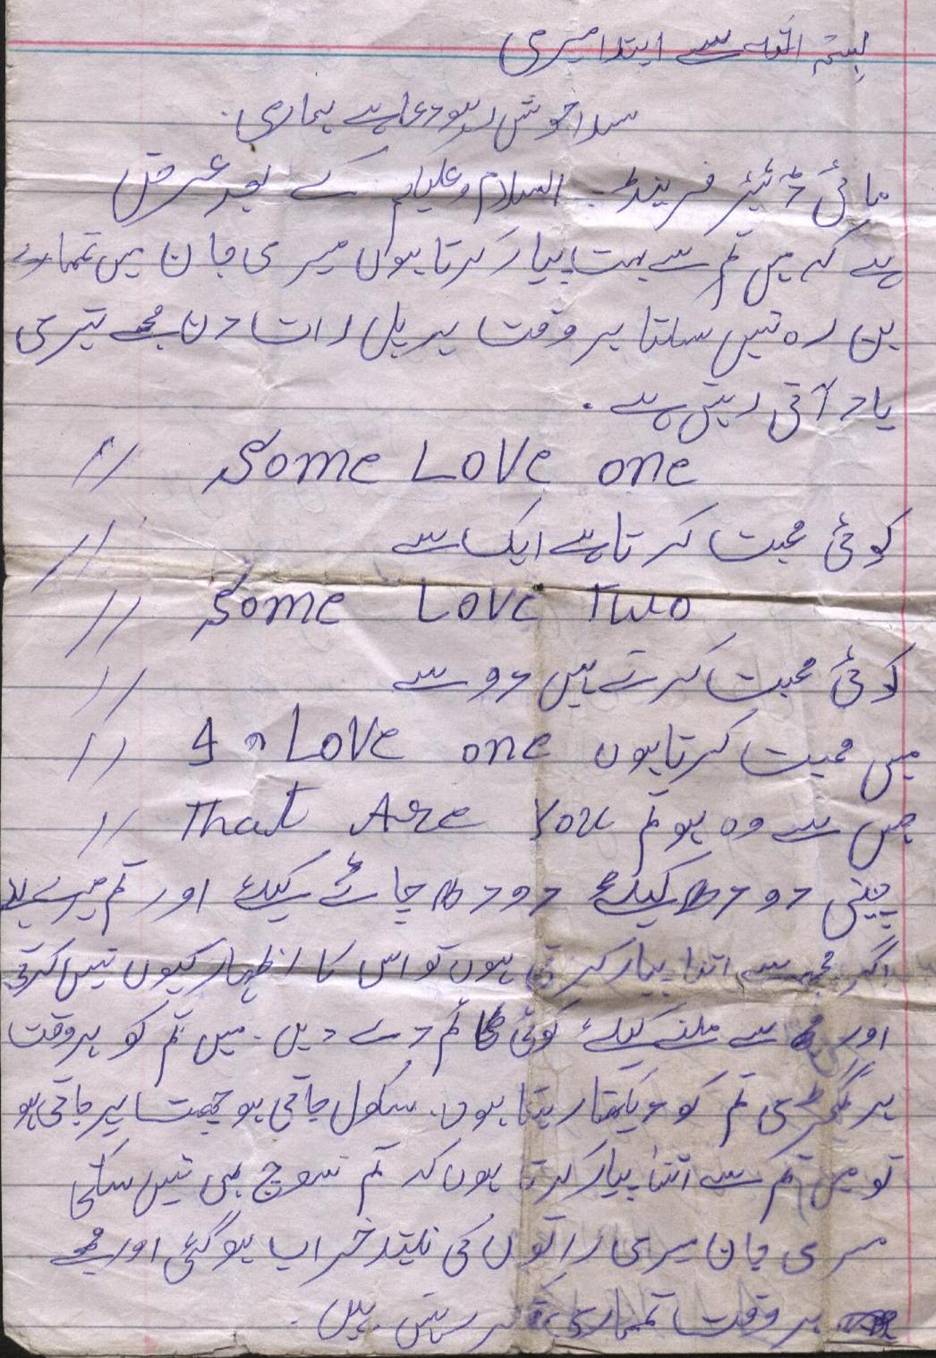 بسم اللہ سے ابتدا میری
سدا خوش رہو دعا ہے ہماری۔
مائی ڈئیر فرینڈ۔ السلام وعلیکم کے بعد عرض
ہے کہ میں تم سے بہت پیار کرتا ہوں میری جان میں تمہارے
بن رہ نہیں سکتا ہر وقت ہر پل رات دن مجھے تیری
یاد آتی رہتی ہے۔
Some Love one //
کوئی محبت کرتا ہے ایک سے //
Some Love Two //
کوئی محبت کرتے ہیں دو سے //
میں محبت کرتا ہوں Love one //
جس سے وہ ہو تم That Are You //
چینی دودھ کیلئے دودھ چائے کیلئے اور تم میرے لیے
اگر مجھ سے اتنا پیار کرتی ہوں تو اس کا اظہار کیوں نہیں کرتی
اور مجھ سے ملنے کیلئے کوئی ٹائم دے دیں۔ میں تم کو ہر وقت
ہر گھڑی تم کو دیکھتا رہتا ہوں۔ سکول جاتی ہو چھت پر جاتی ہو
تو میں تم سے اتنا پیار کرتا ہوں کہ تم سوچ بھی نہیں سکتی
میری جان میری راتوں کی نیند خراب ہو گئی اور مجھے
ہر وقت تمہاری رہتی ہیں۔